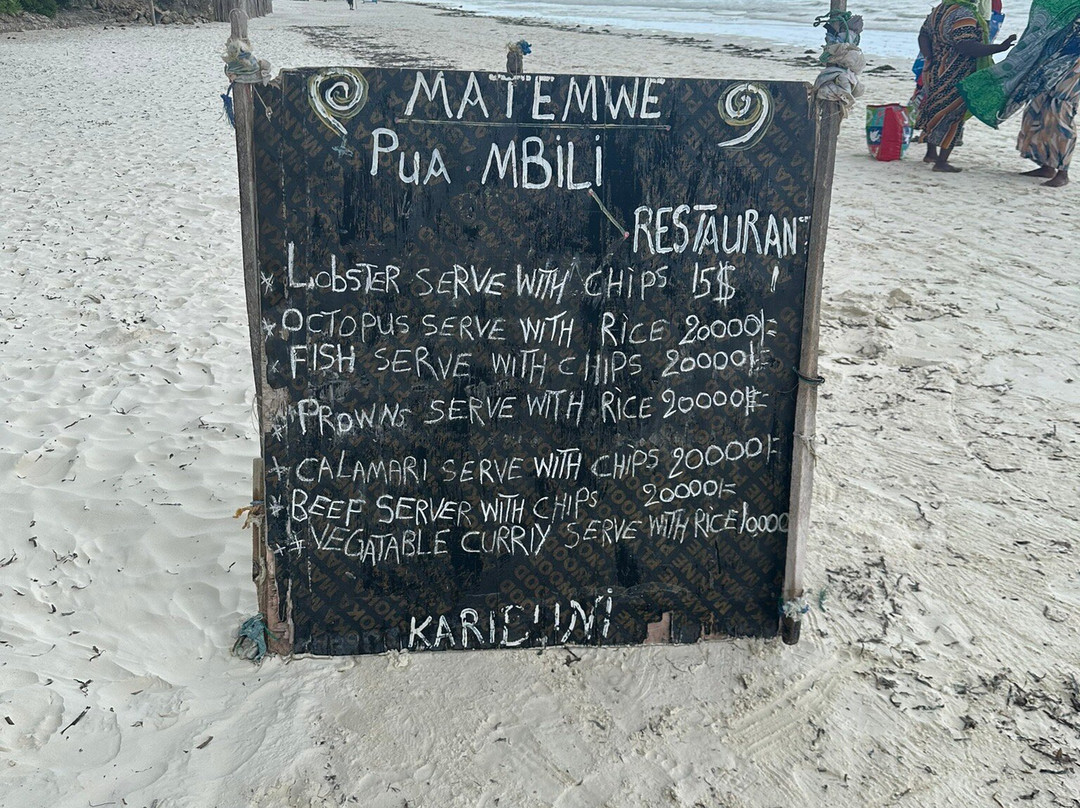 MATEMWE
PUA MBILI
RESTAURANT
* LOBSTER SERVE WITH CHIPS 15$ !
* OCTOPUS SERVE WITH RICE 20000/=
* FISH SERVE WITH CHIPS 20000/=
* PROWNS SERVE WITH RICE 20000/=
* CALAMARI SERVE WITH CHIPS 20000/=
* BEEF SERVER WITH CHIPS 20000/=
* VEGATABLE CURRIY SERVE WITH RICE 10000
KARIBUNI